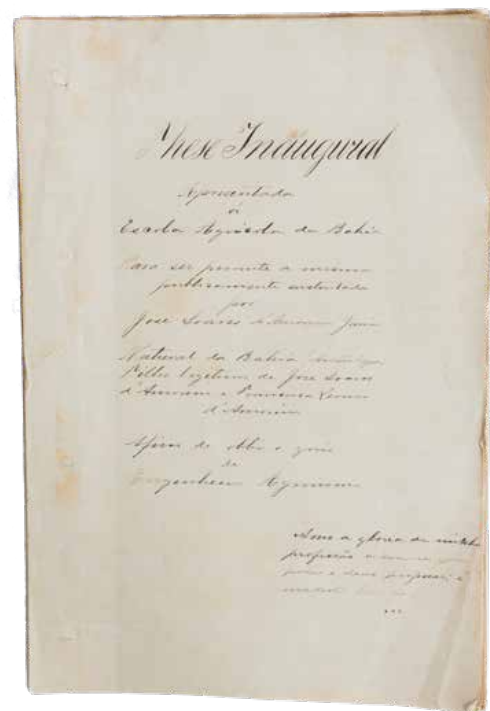 These Inaugural
Apresentada
á
Escola Agricola da Bahia
Para ser perante a mesma
publicamente sustentada
por
José Soares d'Amorim Junior
Natural da Bahia
Filho legitimo de José Soares
d'Amorim e Francisca
d'Amorim
Afim de obter o grau
de
Engenheiro Agronomo
Amo a gloria da minha
profissão